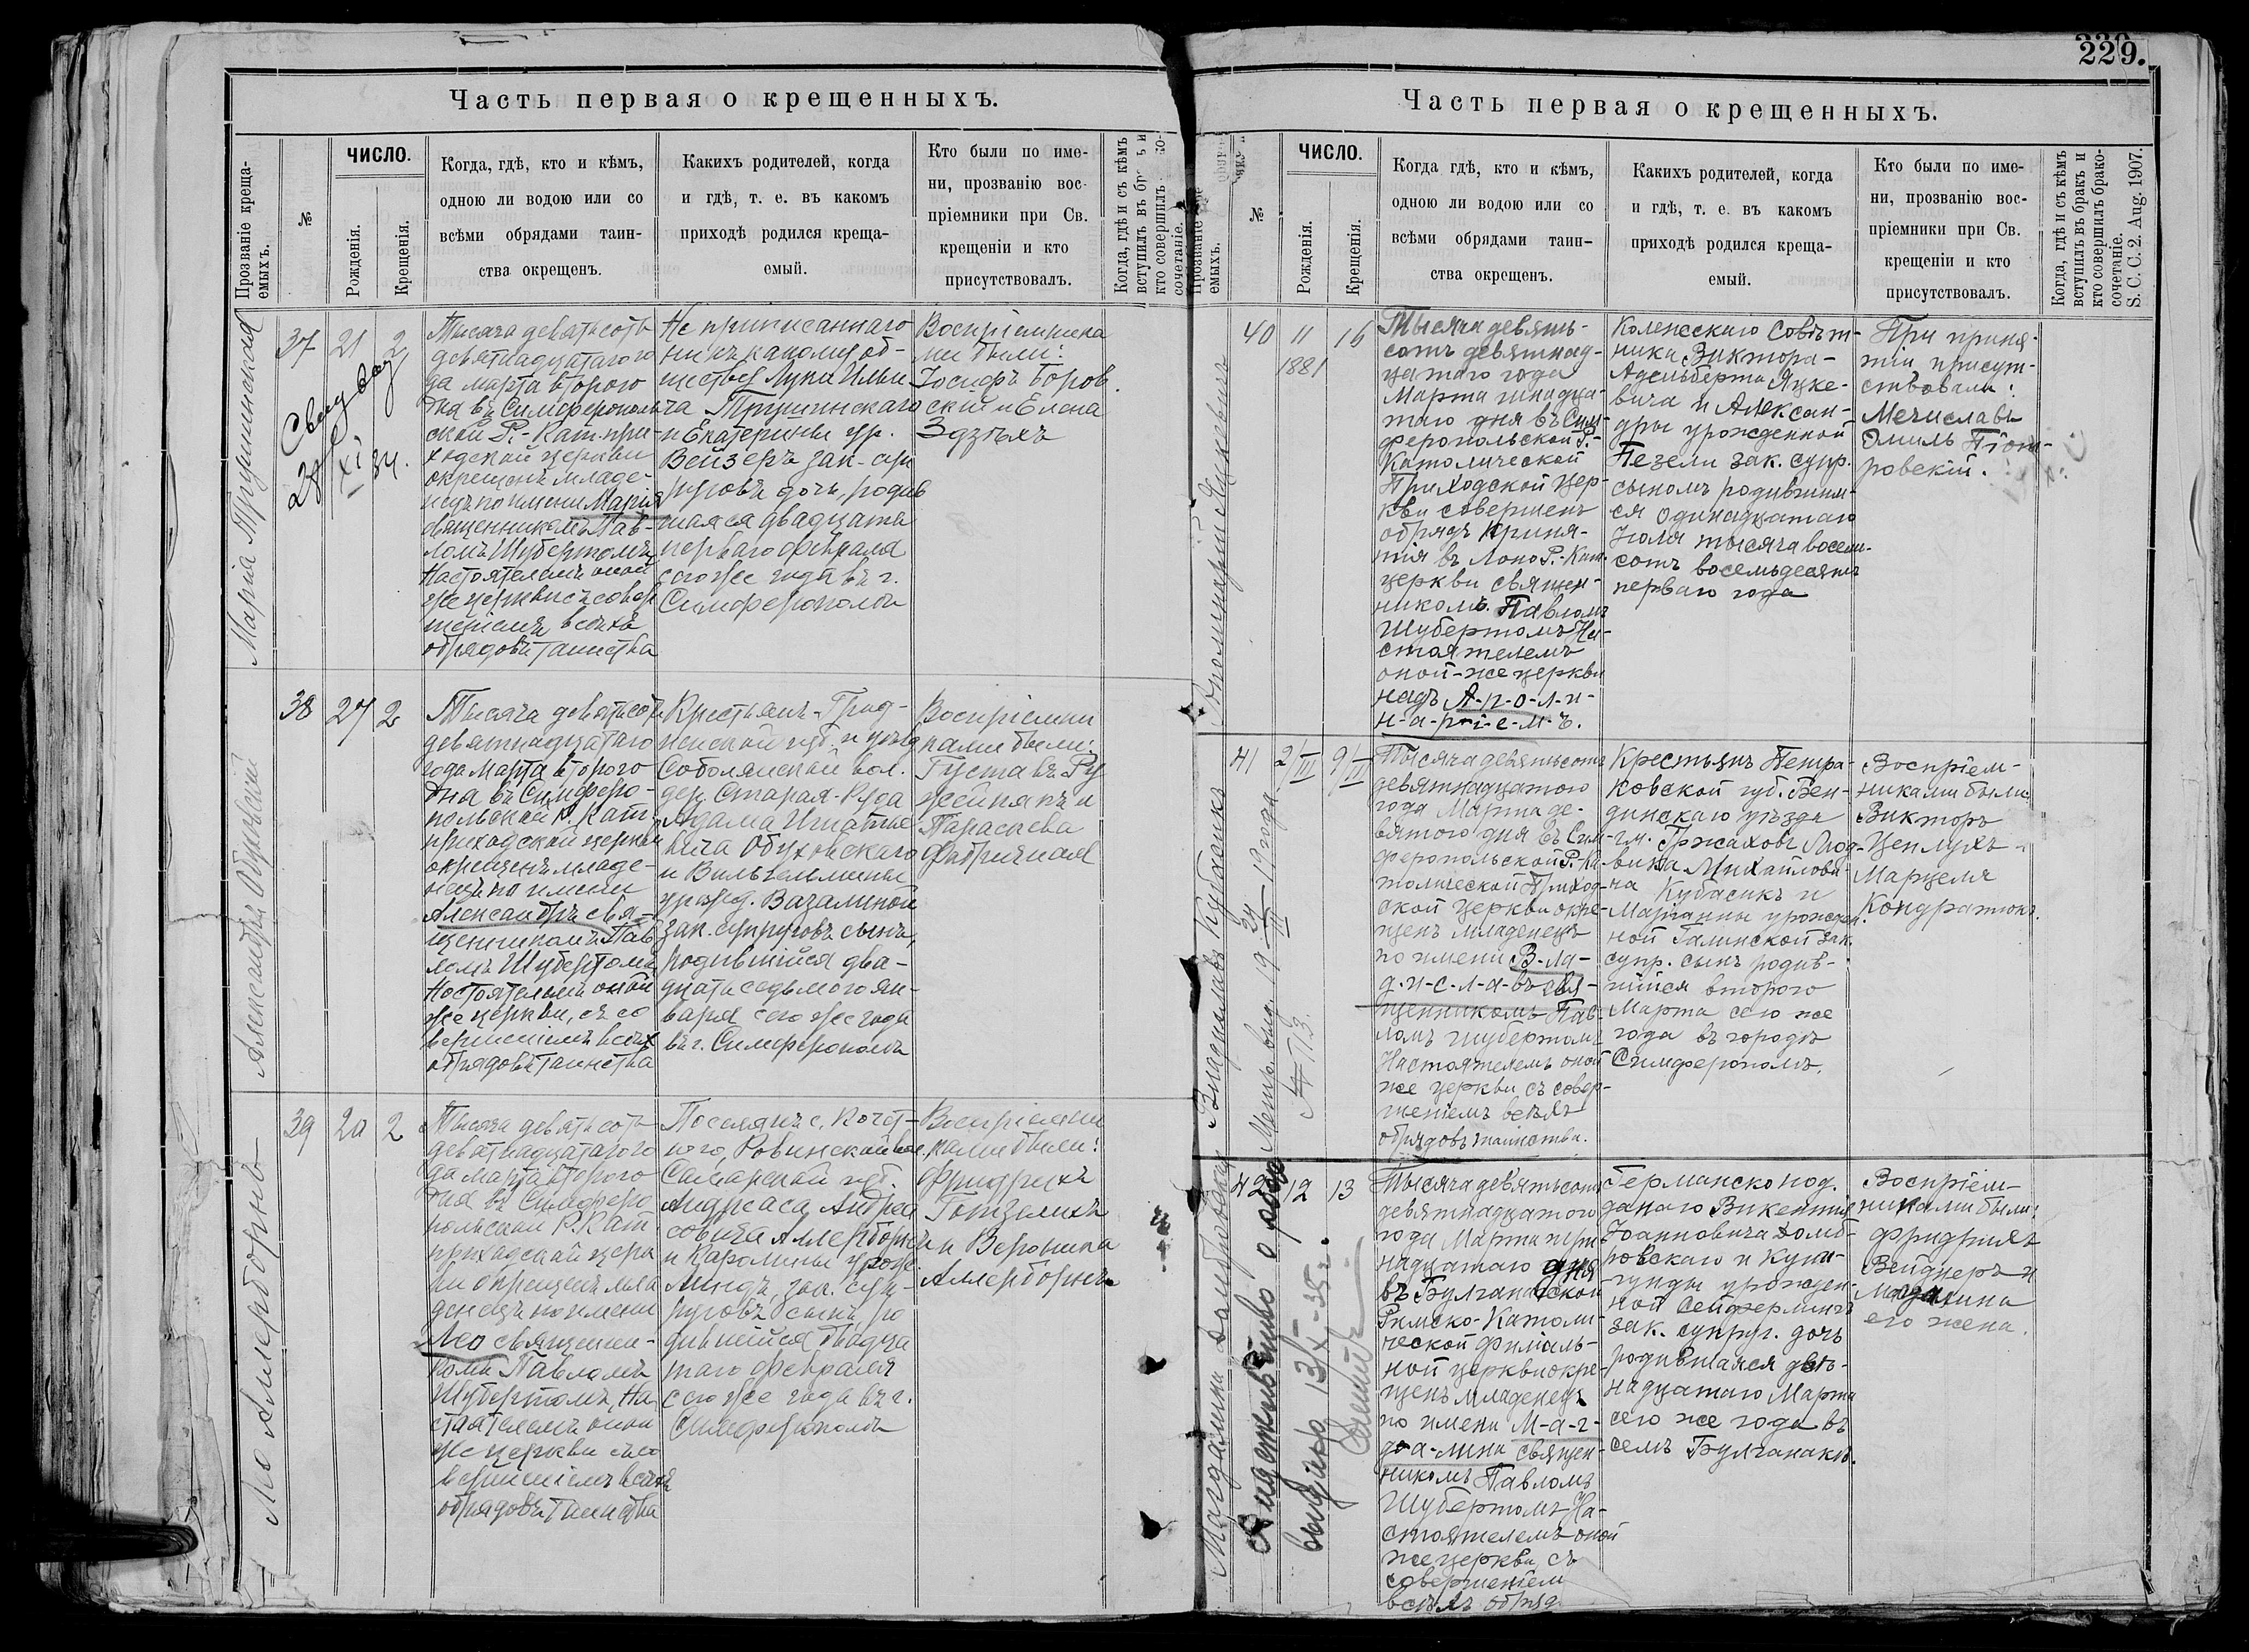 229.
Часть первая о крещенныхъ.
Прозваніе креща-
емыхъ.
№
ЧИСЛО.
Рожденія.
Крещенія.
Когда, гдѣ, кто и кѣмъ,
одною ли водою или со
всѣми обрядами таин-
ства окрещенъ.
Какихъ родителей, когда
и гдѣ, т. е. въ какомъ
приходѣ родился креща-
емый.
Кто были по име-
ни, прозванію вос-
пріемники при Св.
крещеніи и кто
присутствовалъ.
Когда, гдѣ и съ кѣмъ
вступилъ въ
кто совершилъ
сочетаніе.
Марія Трушинская
37
21
2
Тысяча девятьсотъ
девятнадцатаго го
да марта второго
дня въ Симферополь
ской Р.-Кат. при-
ходской церкви
окрещенъ младе-
нецъ по имени Марія
священникомъ Пав-
ломъ Шубертомъ
Настоятелемъ оной
же церкви съ совер
шеніемъ всѣхъ
обрядовъ таинства
Не приписаннаго
ни къ какому об-
ществу Луки Ильи
ча Трушинскаго
и Екатерины ур.
Вейзеръ зак. суп
руговъ дочь, родив
шаяся двадцать
перваго февраля
сего же года въ г.
Симферополѣ
Воспріемника
ми были:
Іосифъ Боров
скій и Елена
Здзѣхъ
Александръ Обуховскій
38
27
2
Тысяча девятьсотъ
девятнадцатаго
года Марта второго
дня въ Симферо-
польской Р. Кат.
приходской церкви
окрещенъ младе-
нецъ по имени
Александръ свя-
щенникомъ Пав
ломъ Шубертомъ
Настоятелемъ оной
же церкви, съ со
вершеніемъ всѣхъ
обрядовъ таинства
Крестьянъ Грод-
ненской губ. и уѣзд
Соболянской вол.
дер. Старая-Руда
Адама Игнатье
вича Обуховскаго
и Вильгельмины
урожд. Вазалиной
зак. супруговъ сынъ,
родившійся два-
дцать седьмого ян-
варя сего же года
въ г. Симферополѣ
Воспріемни
ками были:
Густавъ Ру
и
Параскева
Фабричная
Лео Аллерборнъ
39
20
2
Тысяча девятьсотъ
девятнадцатаго го
да марта второго
дня въ Симферо
польской Р. Кат.
приходской церк
ви окрещенъ мла
денецъ по имени
Лео священни-
комъ Павломъ
Шубертомъ, На
стоятелемъ оной
же церкви съ со
вершеніемъ всѣхъ
обрядовъ таинства
Поселянъ с. Кочет-
ного, Ровинской вол.
Самарской губ.
Андреаса Андреа
совича Аллерборнъ
и Каролины урож
Линдъ, зак. суп-
руговъ сынъ, ро
дившійся двадца
таго февраля
сего же года въ г.
Симферополѣ
Воспріемни
ками были:
Фридрихъ
Готзелихъ
и Вероника
Аллерборнъ
Часть первая о крещенныхъ.
емыхъ.
№
ЧИСЛО.
Рожденія.
Крещенія.
Когда гдѣ, кто и кѣмъ,
одною ли водою или со
всѣми обрядами таин-
ства окрещенъ.
Какихъ родителей, когда
и гдѣ, т. е. въ какомъ
приходѣ родился креща-
емый.
Кто были по име-
ни, прозванію вос-
пріемники при Св.
крещеніи и кто
присутствовалъ.
Когда, гдѣ и съ кѣмъ
вступилъ въ бракъ и
кто совершилъ брако-
сочетаніе.
S. C. C. 2. Aug. 1907.
Аполинарій Яцкевичъ
40
11
1881
16
Тысяча девять-
сотъ девятнад-
цатаго года
Марта шнадца-
таго дня въ Сим
феропольской Р.-
Католической
Приходской цер-
кви совершенъ
обрядъ приня-
тія въ Лоно Р.-Кат.
церкви священ-
никомъ Павломъ
Шубертомъ На-
стоятелемъ
оной-же церкви
надъ А-п-о-л-и-
н-а-р-і-е-м-ъ.
Колежскаго Совѣт-
ника Виктора-
Адельберта Яцке-
вича и Алексан-
дры урожденной
Пезели зак. супр.
сыномъ родившим-
ся одинадцатаго
Іюля тысяча восем-
сотъ восемьдесятъ
перваго года
При приня-
тіи присут-
ствовали:
Мечиславъ
Эмиль Піот-
ровскій.
Владиславъ Кубасикъ
41
2/III
9/III
Тысяча девятьсотъ
девятнадцатого
года Марта де-
вятого дня въ Сим-
феропольской Р.-Ка
толической Приход-
ской церкви окре-
щенъ младенецъ
по имени В-ла-
д-и-с-л-а-въ свя-
щенникомъ Пав-
ломъ Шубертомъ
Настоятелемъ оной
же церкви, съ совер-
шеніемъ всѣхъ
обрядовъ таинства.
Крестьянъ Петра-
ковской губ. Бен-
динскаго уѣзда
гм. Гржаховъ Люд-
вика Михайлови-
ча Кубасикъ и
Маріанны урожден.
ной Галинской зак.
супр. сынъ родив-
шійся второго
Марта сего же
года въ городѣ
Симферополѣ.
Воспріем-
никами были:
Викторъ
Ценлухъ
Марцеля
Кондратюкъ.
Магдалина Домбровская
42
12
13
Тысяча девятьсотъ
девятнадцатого
года Марта три
надцатаго дня
въ Булганакской
Римско-Католи-
ческой филіаль-
ной церкви окре-
щенъ младенецъ
по имени М-а-г-
д-а-лина священ-
никомъ Павломъ
Шубертомъ На-
стоятелемъ оной
же церкви, съ
совершеніем
всѣхъ обряд.
Германско под.
данаго Викентія
Іоанновича Домб-
ровскаго и Куни-
гунды урожден-
ной Сейферлингъ
зак. супруг. дочь
родившаяся двѣ-
надцатаго Марта
сего же года въ
селѣ Булганакъ.
Воспріем-
никами были:
Фридрихъ
Вейднеръ и
Магдалина
его жена.